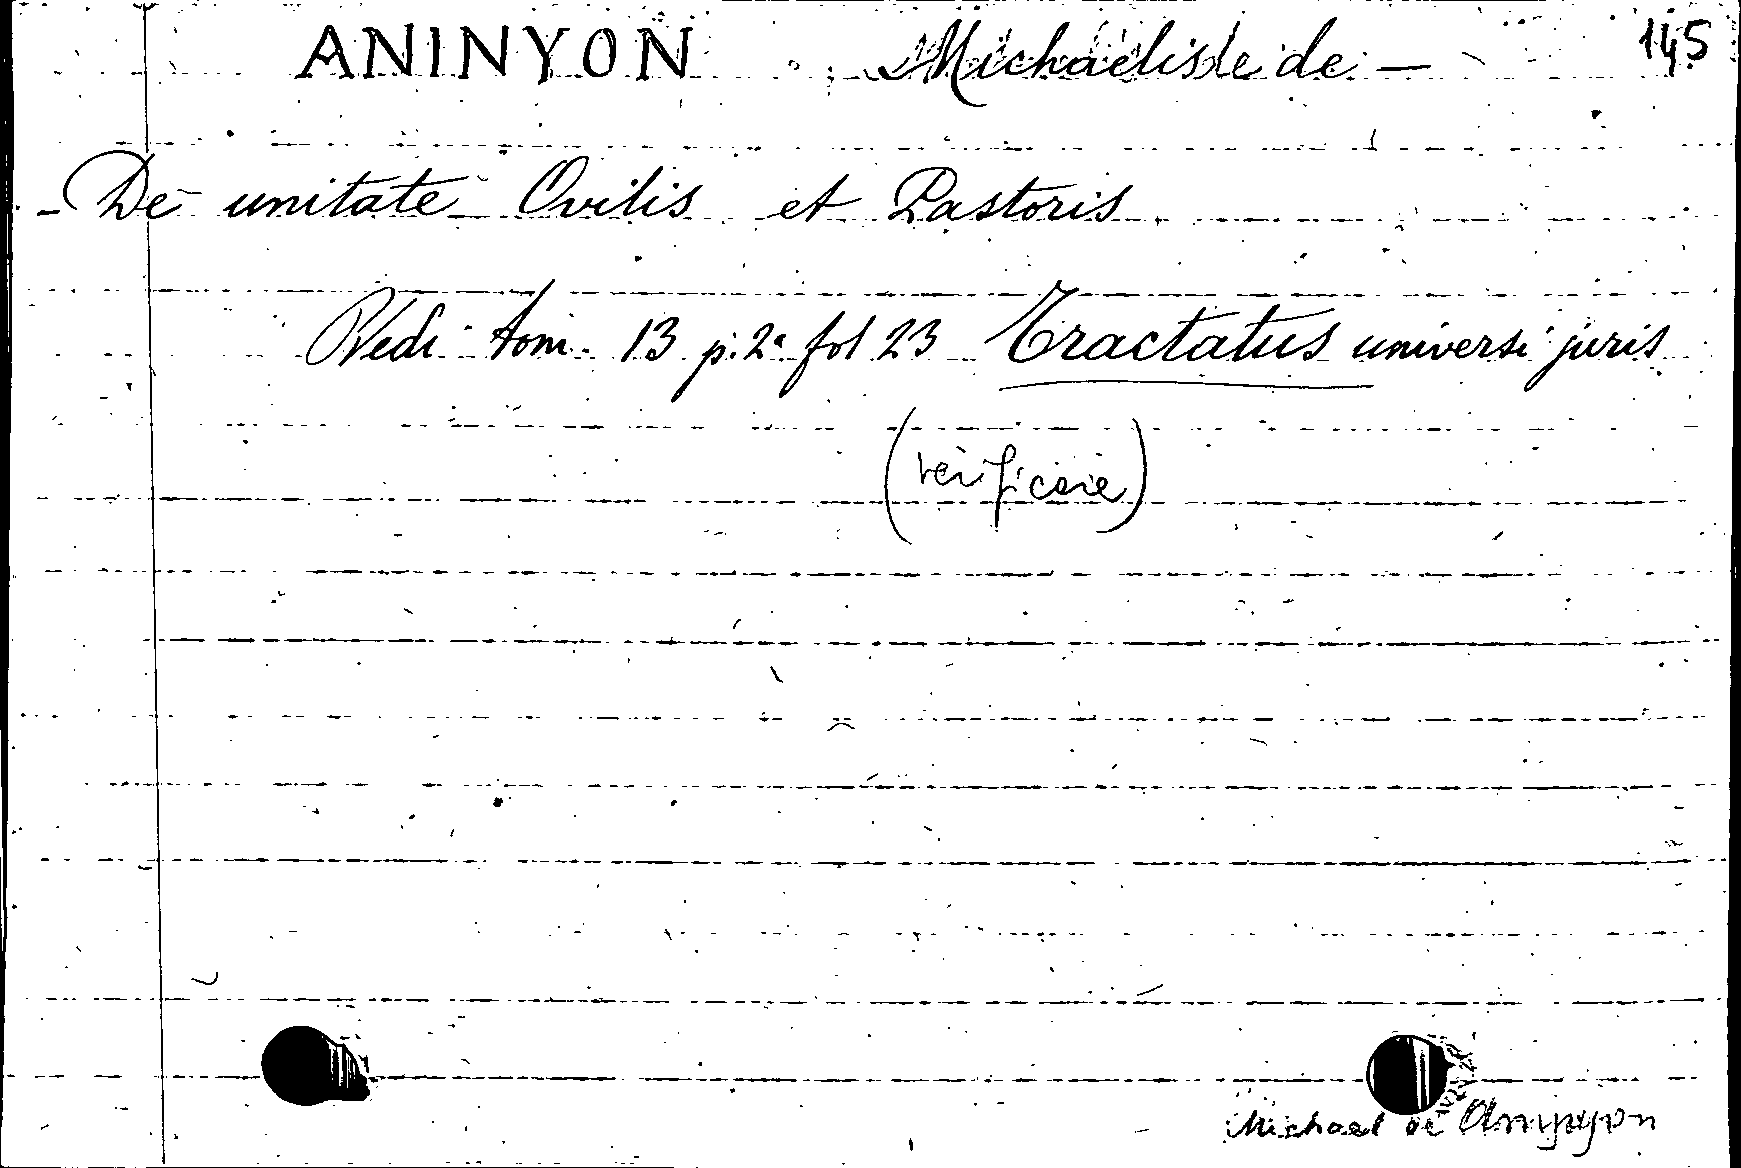 ANINYON Michaelis de — 145
- De unitate Ovilis et Pastoris
Vedi tom. 13 p. 2ª fol 23 Tractatus universi juris
(verificare)
Michael de